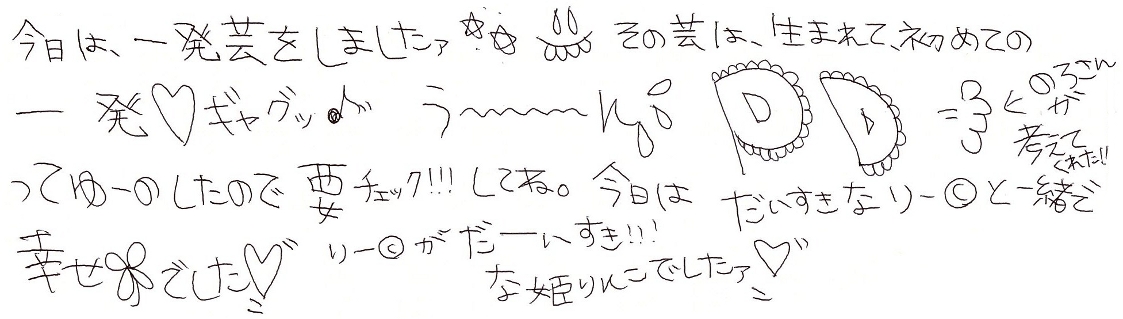 今日は、一発芸をしましたァ☆☆ その芸は、生まれて、初めての
一発♡ギャグッ♪ う〜〜〜ん DD =3
←のろさんが考えてくれた!!
ってゆーのしたので要チェック!!!してね。今日はだいすきなりー©と一緒で
幸せでした♡ りー©がだーいすき!!!
な姫りんこでしたァ♡